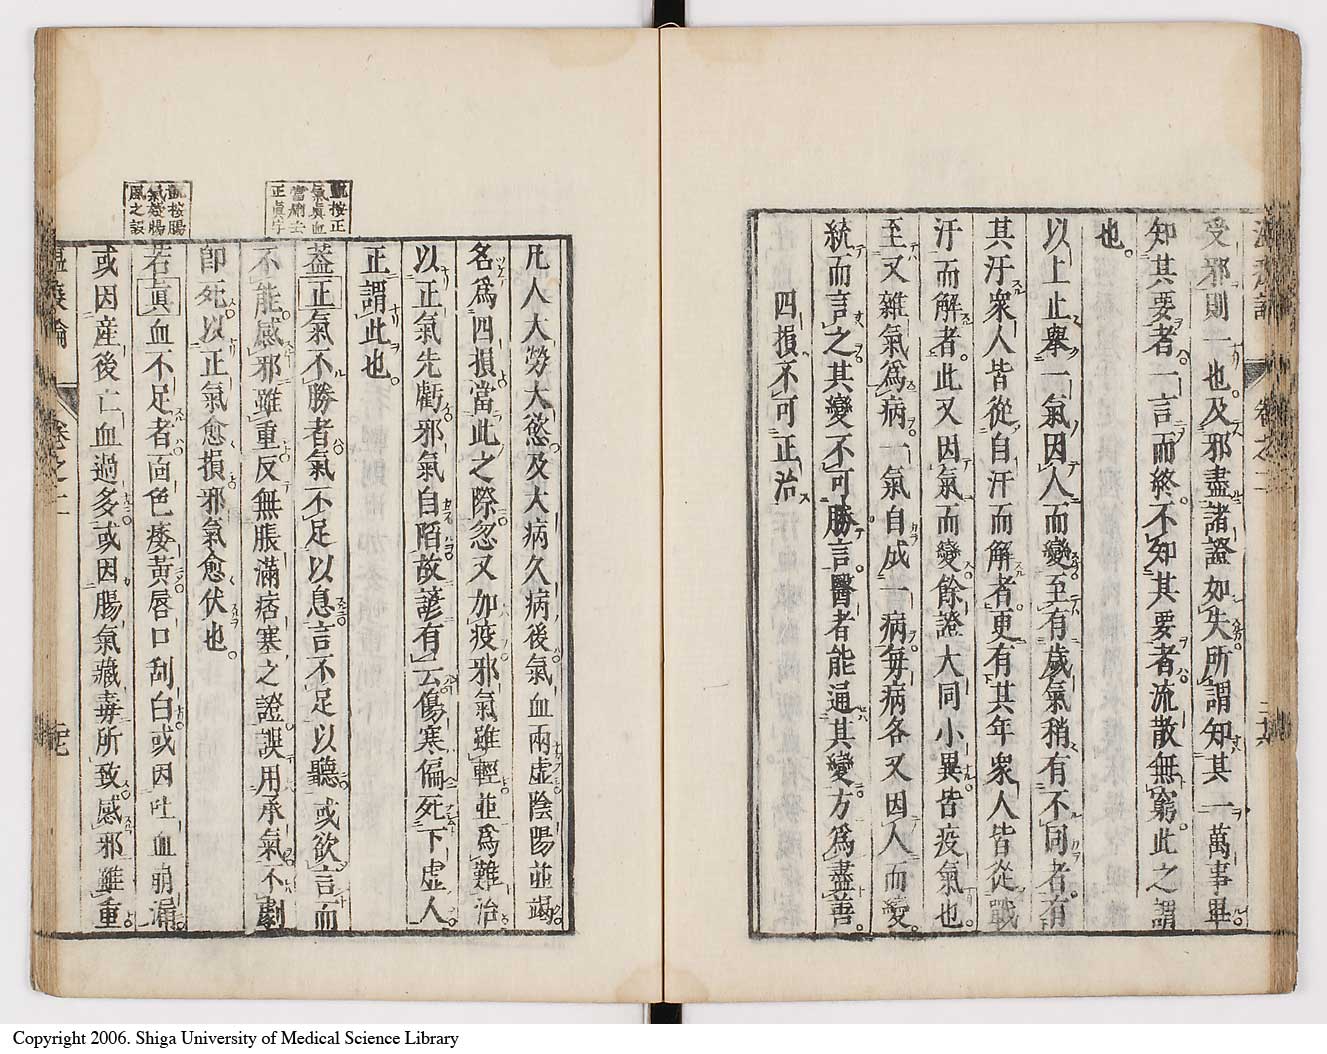 受邪則一也。及邪盡諸證如失。所謂知其一萬事畢
知其要者。一言而終。不知其要者。流散無窮。此之謂
也。
以上止舉一氣因人而變。至有歲氣稍有不同者。有
其汗衆人皆從自汗而解者。更有其年衆人皆從戰
汗而解者。此又因氣而變。餘證大同小異。皆疫氣也。
至又雜氣為病。一氣自成一病。每病各又因人而變。
統而言之。其變不可勝言。醫者能通其變。方為盡善。
四損不可正治
凡人大勞大慾。及大病久病後。氣血兩虛。陰陽並竭。
名為四損。當此之際。忽又加疫邪氣雖輕。並為難治。
以正氣先虧。邪氣自陷。故諺有云傷寒偏死下虛人。
正謂此也。
蓋正氣不勝者。氣不足以息。言不足以聽。或欲言而
不能。感邪雖重。反無脹滿痞塞之證。誤用承氣。不劇
即死。以正氣愈損。邪氣愈伏也。
若眞血不足者。面色痿黃。唇口刮白。或因吐血崩漏。
或因産後亡血過多。或因腸氣藏毒所致。感邪雖重。
凱按正
氣眞血
當刪去
正眞字
凱按腸
氣疑腸
風之誤
卷之二
溫疫論
卷之二